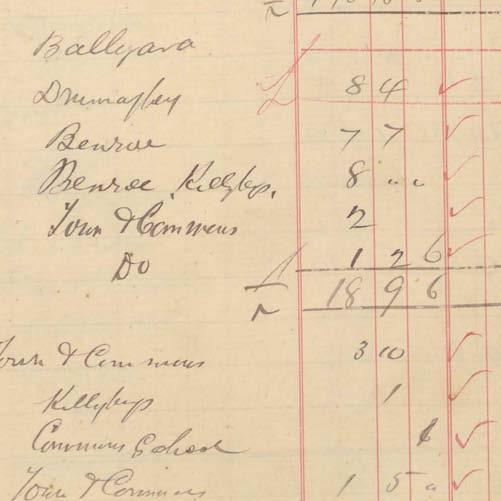 Ballyara
Drumafley 8 4
Benroe 7 7
Benroe Killybegs. 8 " "
Town & Commons 2
Do 1 2 6
18 9 6
Town & Commons 3 10
Killybegs 1
Commons School 6
Town & Commons 1 5 "